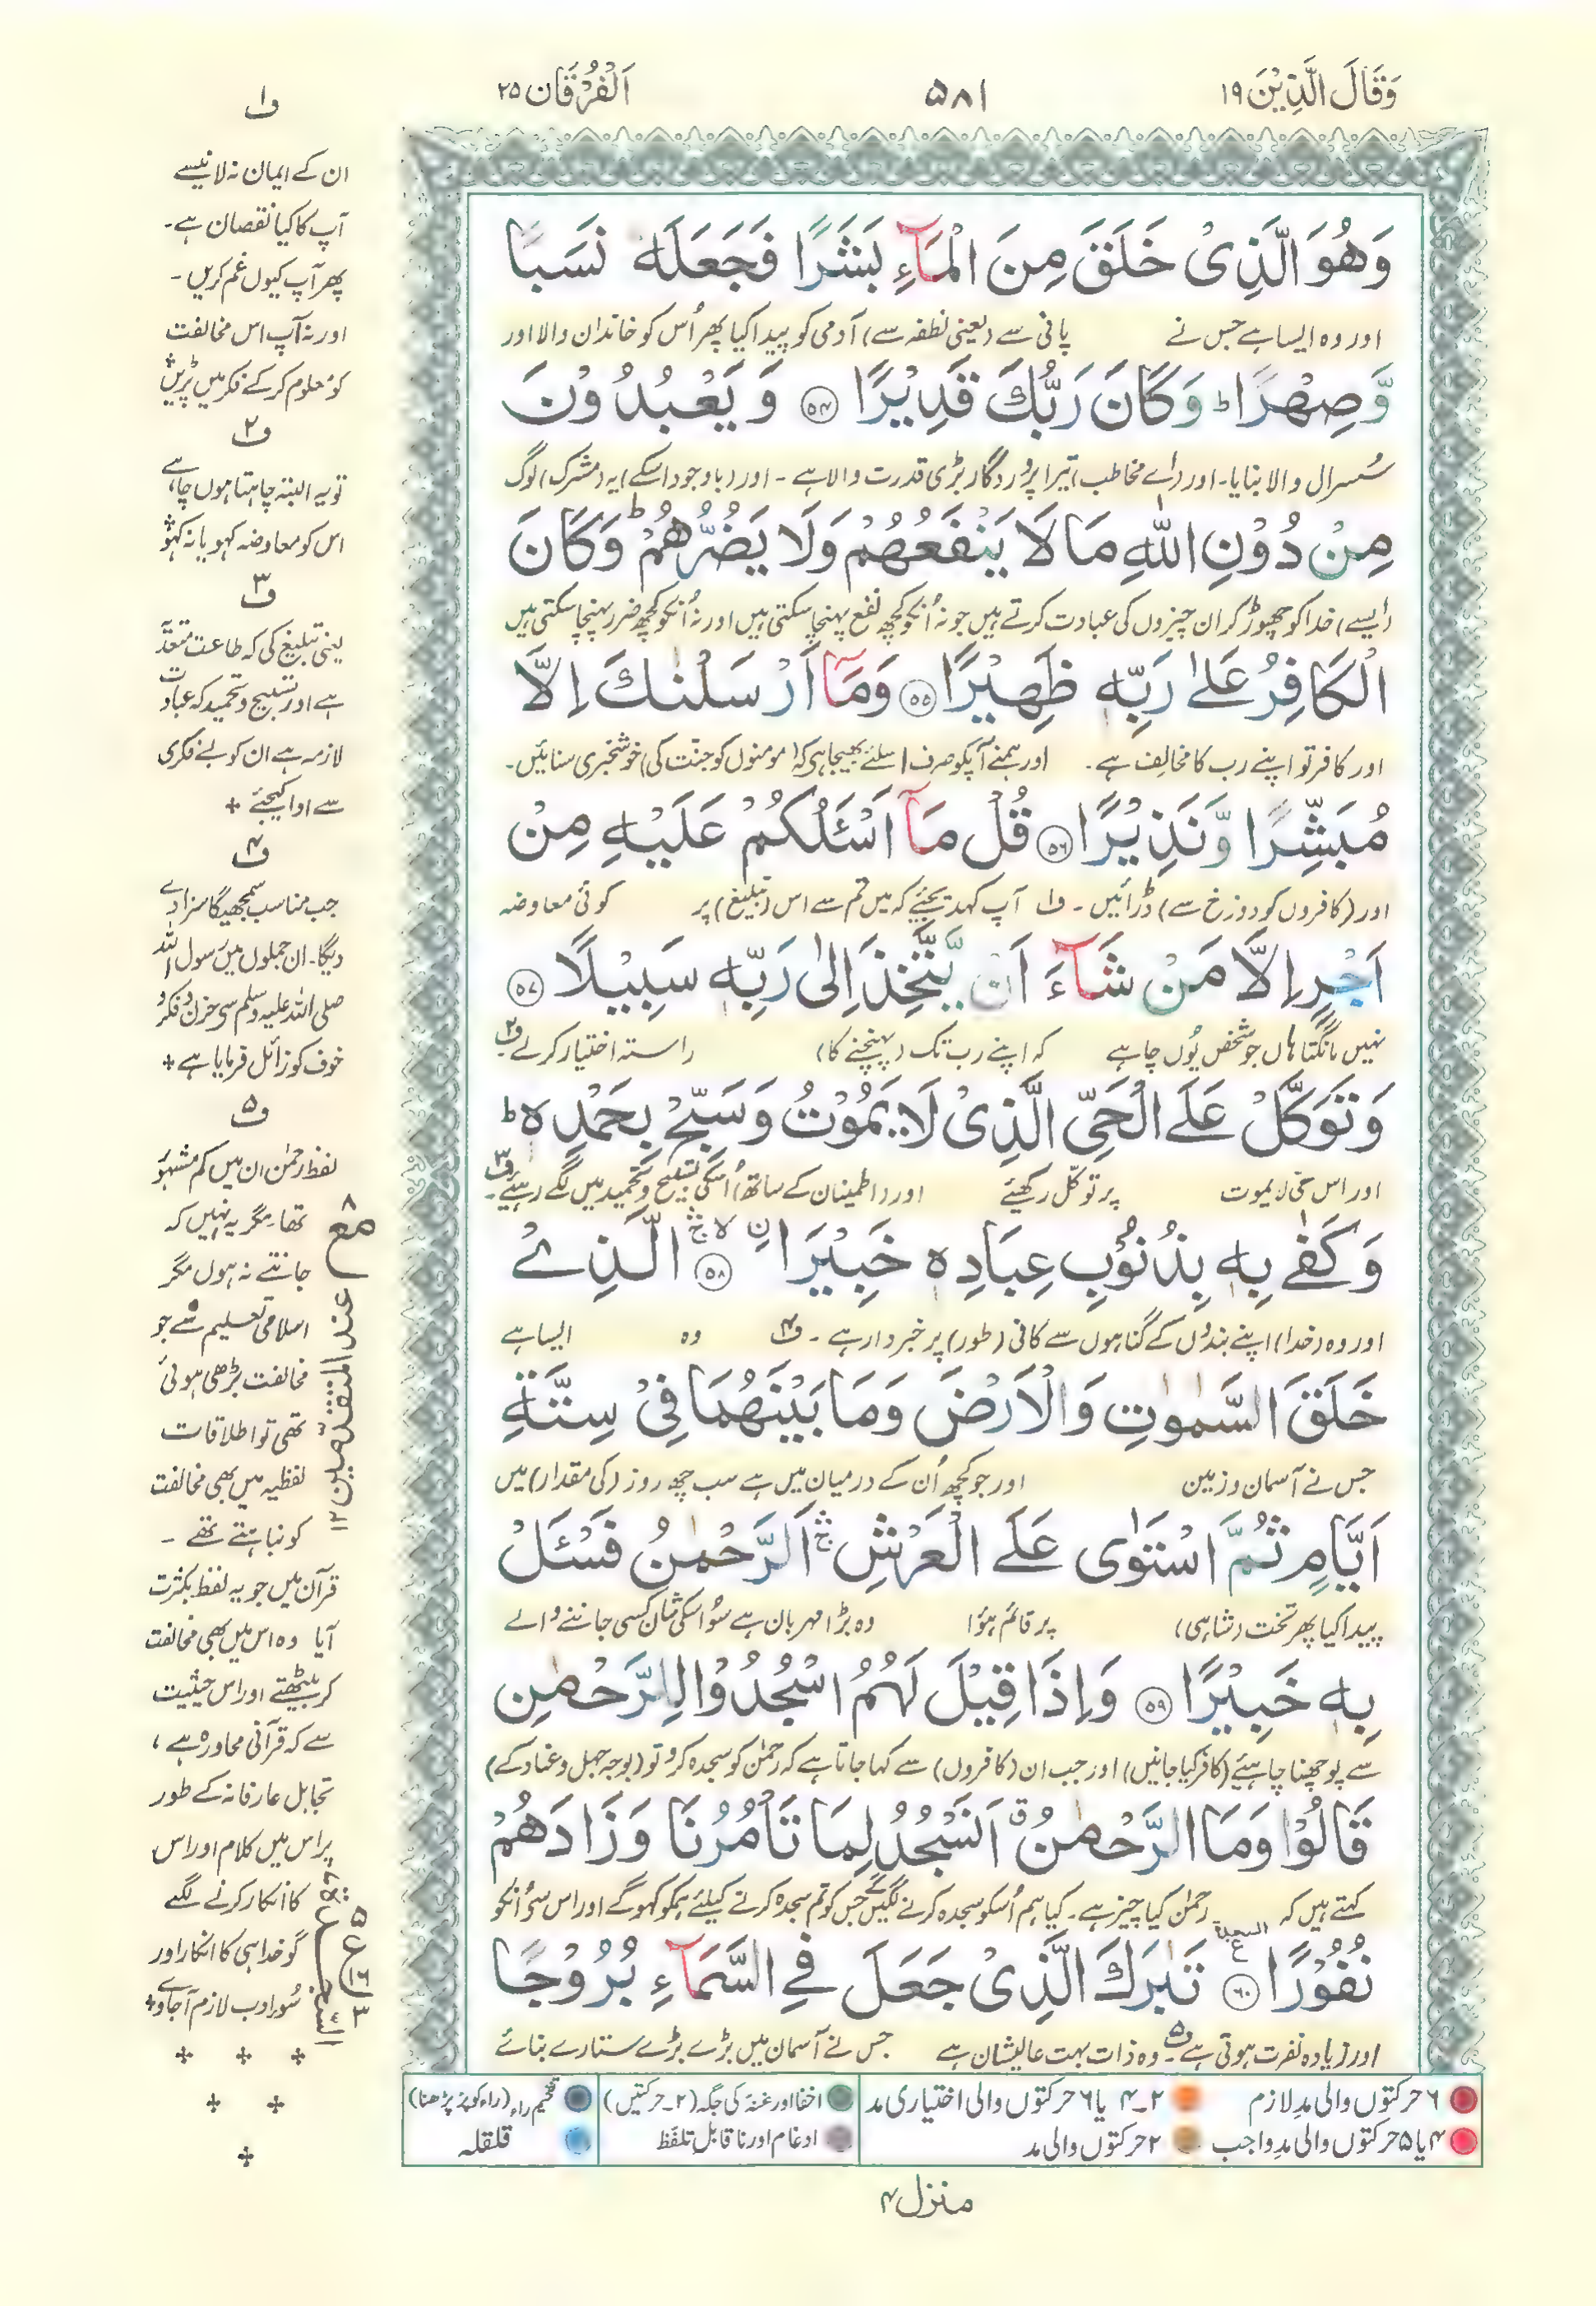 وَقَالَ الَّذِيْنَ ۱۹
۵۸۱
اَلْفُرْقَان ۲۵
وَهُوَ الَّذِىْ خَلَقَ مِنَ الْمَآءِ بَشَرًا فَجَعَلَهٗ نَسَبًا
اور وہ ایسا ہے جس نے پانی سے (یعنی نطفہ سے) آدمی کو پیدا کیا پھر اُس کو خاندان والا اور
وَّصِهْرًا ؕ وَكَانَ رَبُّكَ قَدِيْرًا ۝۵۴ وَ يَعْبُدُوْنَ
سُسرال والا بنایا۔ اور (اے مخاطب) تیرا پروردگار بڑی قدرت والا ہے ۔ اور (باوجود اسکے) یہ (مشرک) لوگ
مِنْ دُوْنِ اللّٰهِ مَا لَا يَنْفَعُهُمْ وَلَا يَضُرُّهُمْ ؕ وَكَانَ
(ایسے) خدا کو چھوڑ کر ان چیزوں کی عبادت کرتے ہیں جو نہ اُنکو کچھ نفع پہنچا سکتی ہیں اور نہ اُنکو کچھ ضرر پہنچا سکتی ہیں
الْكَافِرُ عَلٰى رَبِّهٖ ظَهِيْرًا ۝۵۵ وَمَآ اَرْسَلْنٰكَ اِلَّا
اور کافر تو اپنے رب کا مخالِف ہے۔ اور ہمنے آپکو صرف اسلئے بھیجا ہی کہ (مومنوں کو جنت کی) خوشخبری سنائیں۔
مُبَشِّرًا وَّنَذِيْرًا ۝۵۶ قُلْ مَآ اَسْـَٔلُكُمْ عَلَيْهِ مِنْ
اور (کافروں کو دوزخ سے) ڈرائیں۔ ف۱ آپ کہہ دیجئے کہ میں تم سے اس (تبلیغ) پر کوئی معاوضہ
اَجْرٍ اِلَّا مَنْ شَآءَ اَنْ يَّتَّخِذَ اِلٰى رَبِّهٖ سَبِيْلًا ۝۵۷
نہیں مانگتا ہاں جو شخص یُوں چاہے کہ اپنے رب تک (پہنچنے کا) راستہ اختیار کرلے ف۲
وَتَوَكَّلْ عَلَى الْحَىِّ الَّذِىْ لَا يَمُوْتُ وَسَبِّحْ بِحَمْدِهٖ ؕ
اور اس حی لایموت پر توکّل رکھئے اور (اطمینان کے ساتھ) اُسکی تسبیح وتحمید میں لگے رہیے ف۳
وَكَفٰى بِهٖ بِذُنُوْبِ عِبَادِهٖ خَبِيْرَا ۝۵۸ الَّذِىْ
اور وہ (خدا) اپنے بندوں کے گناہوں سے کافی (طور) پر خبردار ہے ۔ ف۴ وہ ایسا ہے
خَلَقَ السَّمٰوٰتِ وَالْاَرْضَ وَمَا بَيْنَهُمَا فِىْ سِتَّةِ
جس نے آسمان وزمین اور جو کچھ اُن کے درمیان میں ہے سب چھ روز (کی مقدار) میں
اَيَّامٍ ثُمَّ اسْتَوٰى عَلَى الْعَرْشِ ۛ اَلرَّحْمٰنُ فَسْـَٔلْ
پیدا کیا پھر تخت (شاہی) پر قائم ہوٗا وہ بڑا مہربان ہے سو اسکی شان کسی جاننے والے
بِهٖ خَبِيْرًا ۝۵۹ وَاِذَا قِيْلَ لَهُمُ اسْجُدُوْا لِلرَّحْمٰنِ
سے پوچھنا چاہیئے (کافر کیا جانیں) اور جب ان (کافروں) سے کہا جاتا ہے کہ رحمٰن کو سجدہ کرو تو (بوجہ جہل وعناد کے)
قَالُوْا وَمَا الرَّحْمٰنُ ۗ اَنَسْجُدُ لِمَا تَاْمُرُنَا وَزَادَهُمْ
کہتے ہیں کہ رحمٰن کیا چیز ہے۔ کیا ہم اُسکو سجدہ کرنے لگیں گے جس کو تم سجدہ کرنے کیلئے ہمکو کہو گے اور اس سے اُنکو
نُفُوْرًا ۝۶۰ السجدة تَبٰرَكَ الَّذِىْ جَعَلَ فِى السَّمَآءِ بُرُوْجًا
اور زیادہ نفرت ہوتی ہے ف۵۔ وہ ذات بہت عالیشان ہے جس نے آسمان میں بڑے بڑے ستارے بنائے
ف۱
ان کے ایمان نہ لانیسے
آپ کا کیا نقصان ہے۔
پھر آپ کیوں غم کریں۔
اور نہ آپ اس مخالفت
کو معلوم کرکے فکر میں پڑیں
ف۲
تو یہ البتہ چاہتا ہوں چاہے
اس کو معاوضہ کہو یا نہ کہو
ف۳
یعنی تبلیغ کی کہ طاعت متعدّ
ہے اور تسبیح وتحمید کہ عبادت
لازمہ ہے ان کو بے فکری
سے ادا کیجئے +
ف۴
جب مناسب سمجھیگا سزا دے
دیگا۔ ان جملوں میں رسول اللہ
صلی اللہ علیہ وسلم سے حزن وفکر و
خوف کو زائل فرمایا ہے +
ف۵
لفظ رحمٰن ان میں کم مشہور
تھا۔ مگر یہ نہیں کہ
جانتے نہ ہوں مگر
اسلامی تعلیم سے جو
مخالفت بڑھی ہوئی
تھی تو اطلاقات
لفظیہ میں بھی مخالفت
کو نباہتے تھے ۔
قرآن میں جو یہ لفظ بکثرت
آیا وہ اس میں بھی مخالفت
کر بیٹھتے اور اس حیثیت
سے کہ قرآنی محاورہ ہے ،
تجاہل عارفانہ کے طور
پر اس میں کلام اور اس
کا انکار کرنے لگے
گو خدا ہی کا انکار اور
سُوء ادب لازم آجاوے +
مع ۸
عند المتقدمین ۱۲
۵
ع
۱۶
۳
۶ حرکتوں والی مدِ لازم
۲۔۴ یا ۶ حرکتوں والی اختیاری مد
اخفا اور غنہ کی جگہ (۲۔حرکتیں)
تفخیم راء (راء کو پُر پڑھنا)
۴ یا ۵ حرکتوں والی مدِ واجب
۲ حرکتوں والی مد
ادغام اور ناقابل تلفّظ
قلقلہ
منزل ۴